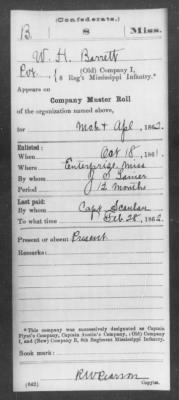 (Confederate.)
B. 8 Miss.
W. H. Barrett
Pvt, { (Old) Company I,
8 Reg't Mississippi Infantry.*
Appears on
Company Muster Roll
of the organization named above,
for Mch & Apl, 1862.
Enlisted:
When Oct 18, 1861.
Where Enterprise, Miss
By whom J. S. Lanier
Period 12 months
Last paid:
By whom Capt Scanlan
To what time Feb 28, 1862.
Present or absent Present
Remarks:
*This company was successively designated as Captain
Flynn's Company, Captain Austin's Company, (Old) Company
I, and (New) Company B, 8th Regiment Mississippi Infantry.
Book mark:
R W Pearson
(642) Copyist.